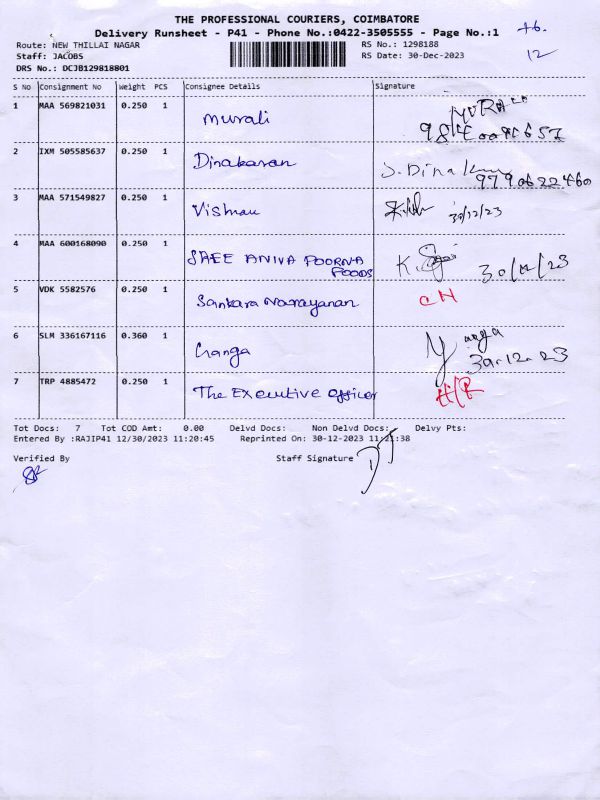 THE PROFESSIONAL COURIERS, COIMBATORE
Delivery Runsheet - P41 - Phone No.:0422-3505555 - Page No.:1
Route: NEW THILLAI NAGAR RS No.: 1298188
Staff: JACOBS RS Date: 30-Dec-2023 12
DRS No.: DCJB129818801
S No Consignment No Weight PCS Consignee Details Signature
1 MAA 569821031 0.250 1 Murali
2 IXM 505585637 0.250 1 Dinakaran S. Dina
3 MAA 571549827 0.250 1 30/12/23
4 MAA 600168090 0.250 1 SREE POORNA FOODS K.
5 VDK 5582576 0.250 1 Sankara Narayanan CN
6 SLM 336167116 0.360 1 Ganga 30.12.23
7 TRP 4885472 0.250 1 The Executive officer
Tot Docs: 7 Tot COD Amt: 0.00 Delvd Docs: Non Delvd Docs: Delvy Pts:
Entered By :RAJIP41 12/30/2023 11:20:45 Reprinted On: 30-12-2023 11:21:38
Verified By Staff Signature